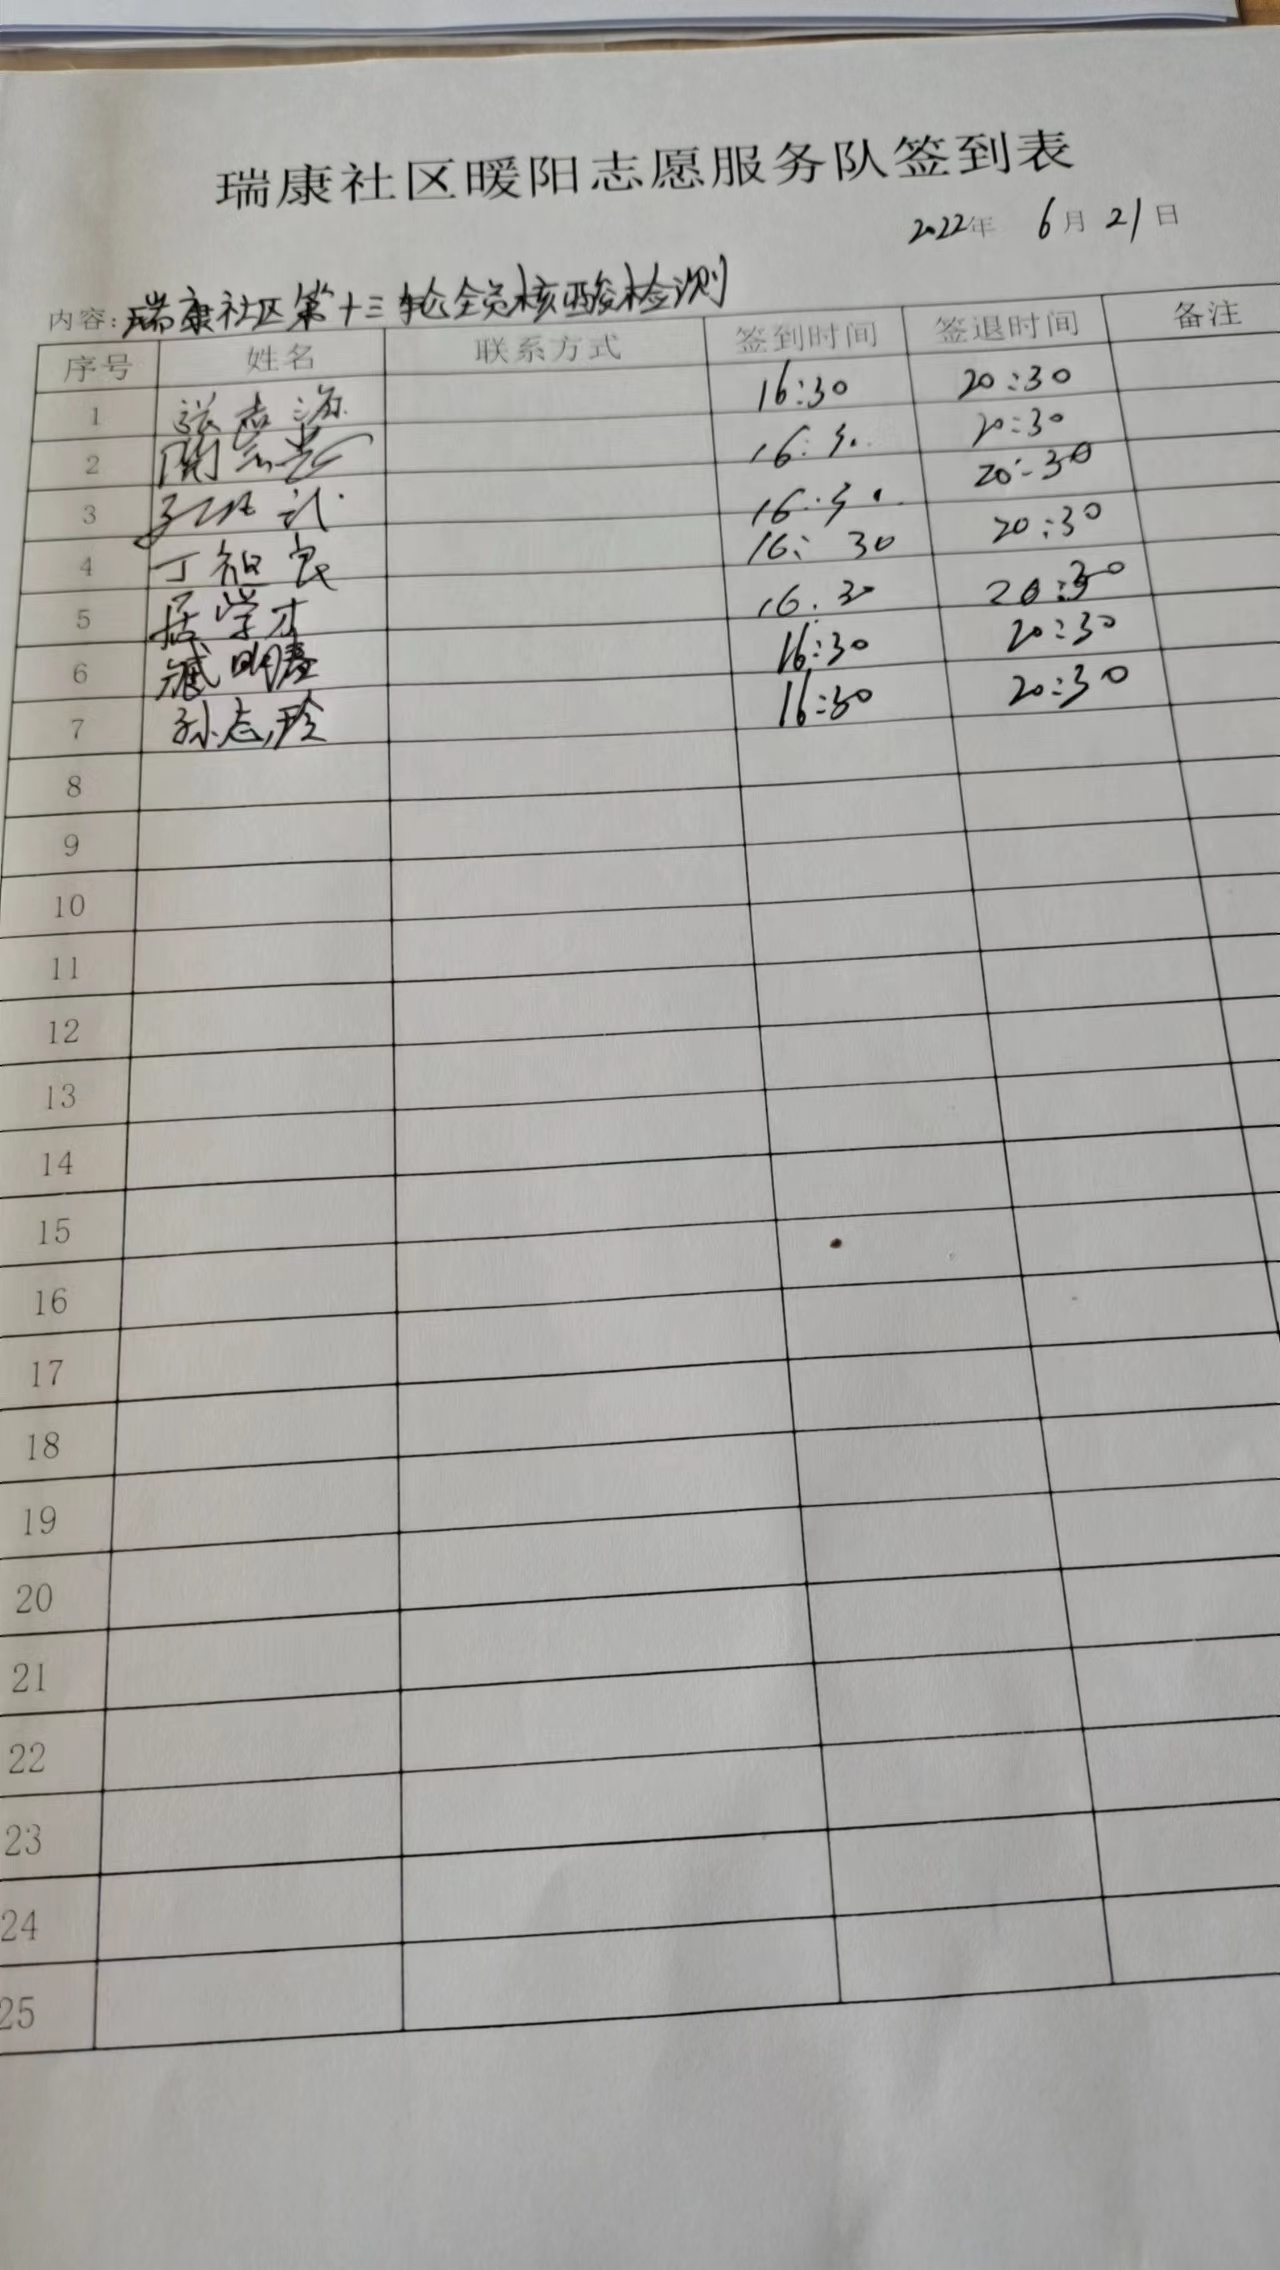 瑞康社区暖阳志愿服务队签到表
2022年 6月21日
内容：瑞康社区第十三轮全员核酸检测
序号 姓名 联系方式 签到时间 签退时间 备注
1 张志海 16:30 20:30
2 16:30 20:30
3 16:30 20:30
4 丁祖良 16:30 20:30
5 居学才 16.30 20:30
6 臧明 16:30 20:30
7 孙志玲 16:30 20:30
8
9
10
11
12
13
14
15
16
17
18
19
20
21
22
23
24
25